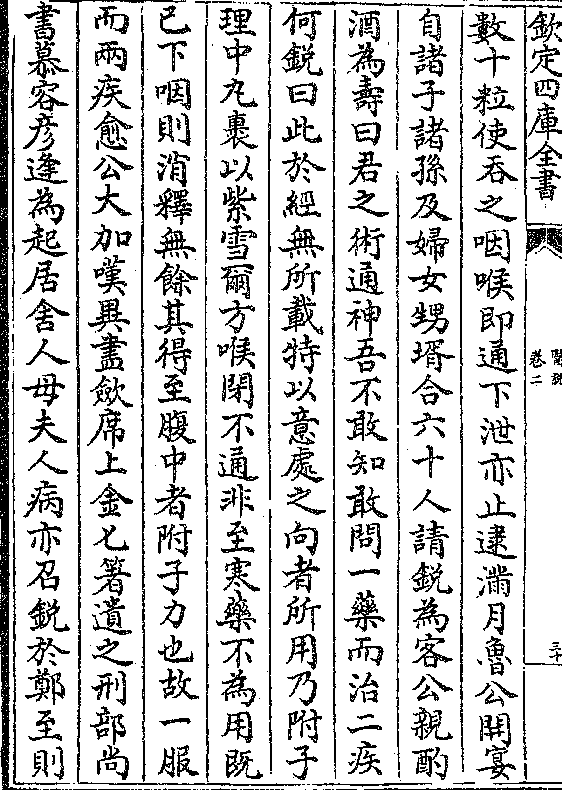 欽定四庫全書
卷二
三十
數十粒使吞之咽喉即通下泄亦止逮滿月魯公開宴
自諸子諸孫及婦女甥壻合六十人請鋭為客公親酌
酒為壽曰君之術通神吾不敢知敢問一藥而治二疾
何鋭曰此於經無所載特以意處之向者所用乃附子
理中丸裹以紫雪爾方喉閉不通非至寒藥不為用既
已下咽則消釋無餘其得至腹中者附子力也故一服
而兩疾愈公大加嘆異盡斂席上金匕箸遺之刑部尚
書慕容彦逢為起居舍人母夫人病亦召鋭於鄭至則